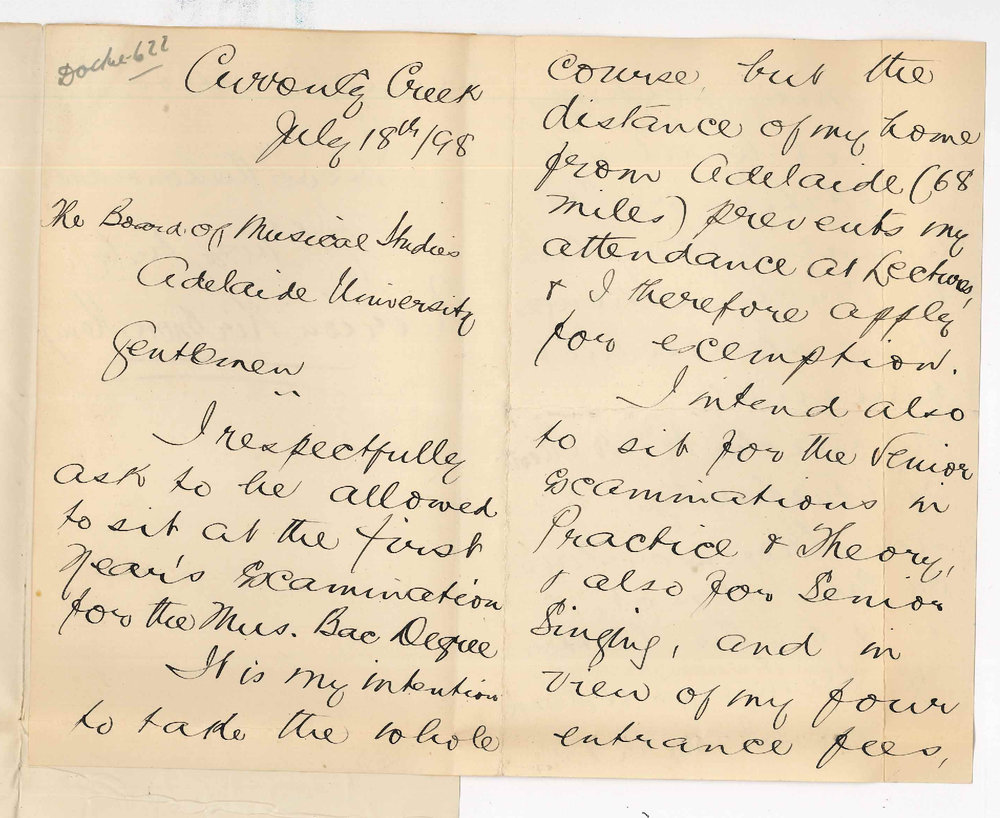 Docket 622
Currency Creek
July 18th/98
The Board of Musical Studies
Adelaide University
Gentlemen
I respectfully
ask to be allowed
to sit at the first
Year's Examination
for the Mus. Bac Degree
It is my intention
to take the whole
course, but the
distance of my home
from Adelaide (68
miles) prevents my
attendance at Lectures,
& I therefore apply
for exemption.
I intend also
to sit for the Senior
Examinations in
Practice & Theory,
& also for Senior
Singing, and in
view of my four
entrance fees,